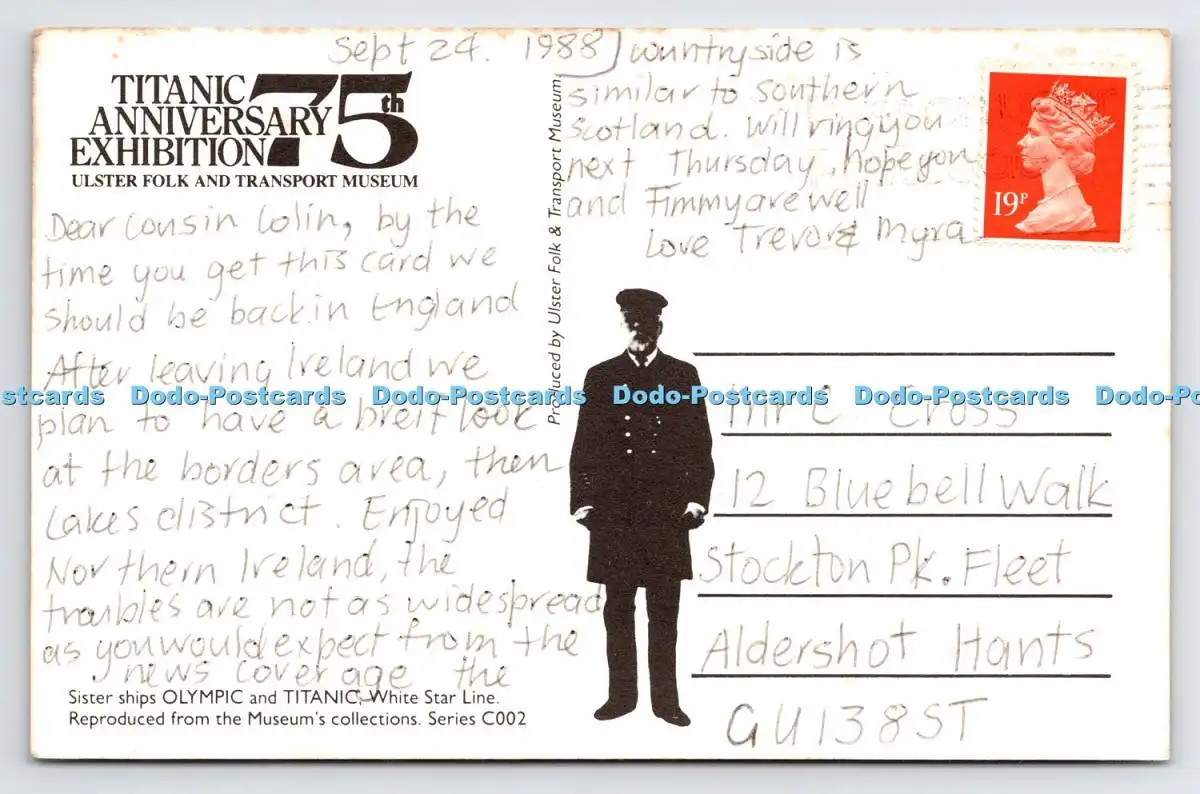 Sept 24. 1988
TITANIC
ANNIVERSARY
EXHIBITION 75th
ULSTER FOLK AND TRANSPORT MUSEUM
Dear Cousin Colin, by the
time you get this card we
should be back in England
After leaving Ireland we
plan to have a breif look
at the borders area, then
Lakes district. Enjoyed
Northern Ireland, the
troubles are not as widespread
as you would expect from the
news coverage the
countryside is
similar to southern
Scotland. Will ring you
next Thursday, hope you
and Fimmy are well
Love Trevor & Myra
Sister ships OLYMPIC and TITANIC, White Star Line.
Reproduced from the Museum's collections. Series C002
Produced by Ulster Folk & Transport Museum
19P
Mr C Cross
12 Bluebell Walk
Stockton Pk. Fleet
Aldershot Hants
GU138ST
stcards Dodo-Postcards Dodo-Postcards Dodo-Postcards Dodo-Postcards Dodo-Post